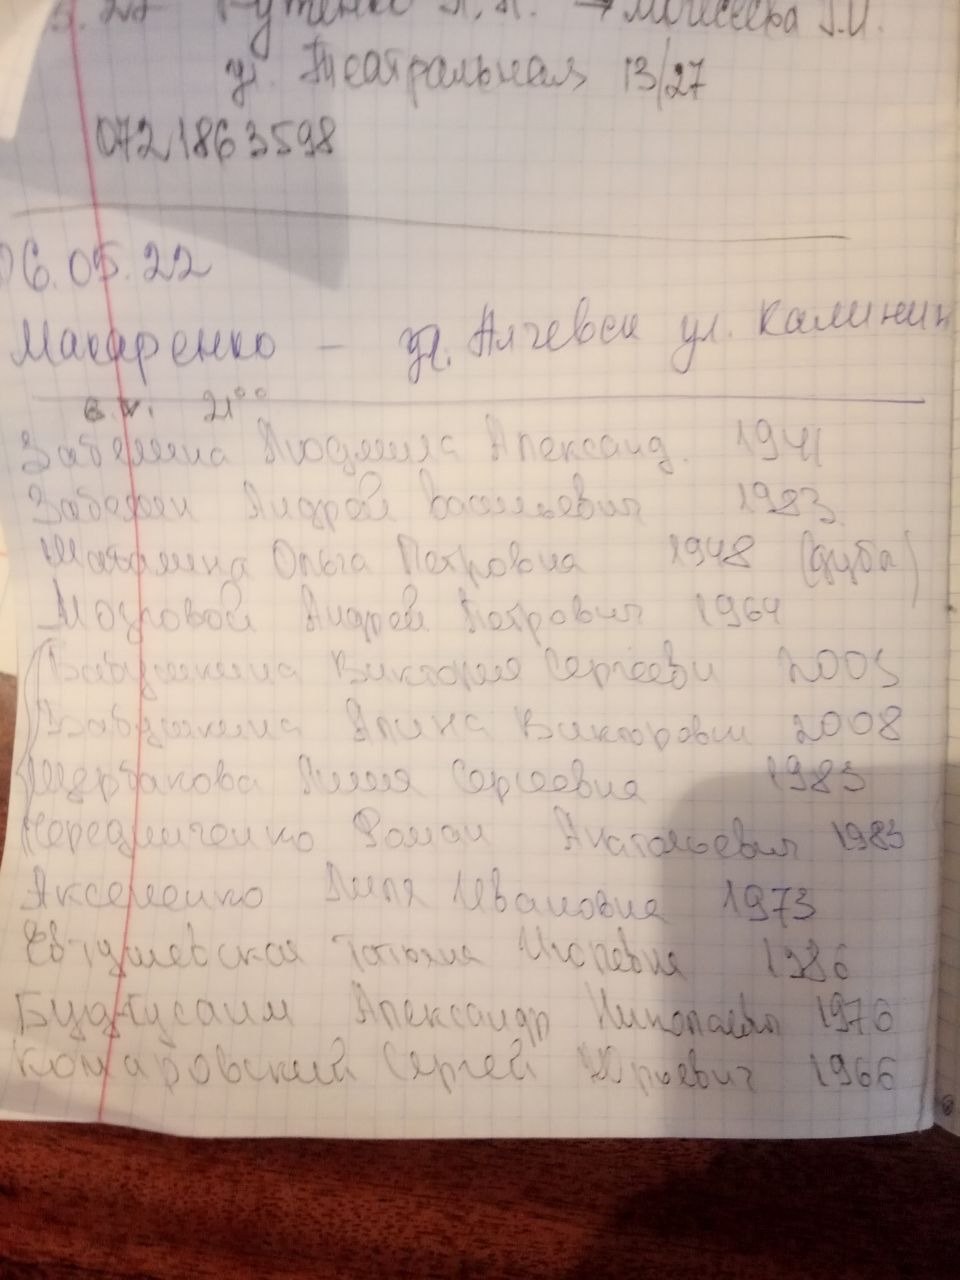 Моисеева Г.И.
ул. Театральная 13/27
0721863598
06.05.22
Макаренко - Алчевск ул. Калинин
21°°
Людмила Александ. 1941
Андрей Васильевич 1983
Ольга Петровна 1948
Мозговой Андрей Петрович 1964
Бабушкина Виктория Сергеевн 2005
Бабушкина Алина Викторовн 2008
Щербакова Лилия Сергеевна 1983
Чередниченко Роман Анатольевич 1983
Аксененко Лиля Ивановна 1973
Евтушевская Татьяна Игоревна 1986
Александр Николаевич 1976
Комаровский Сергей Юрьевич 1966